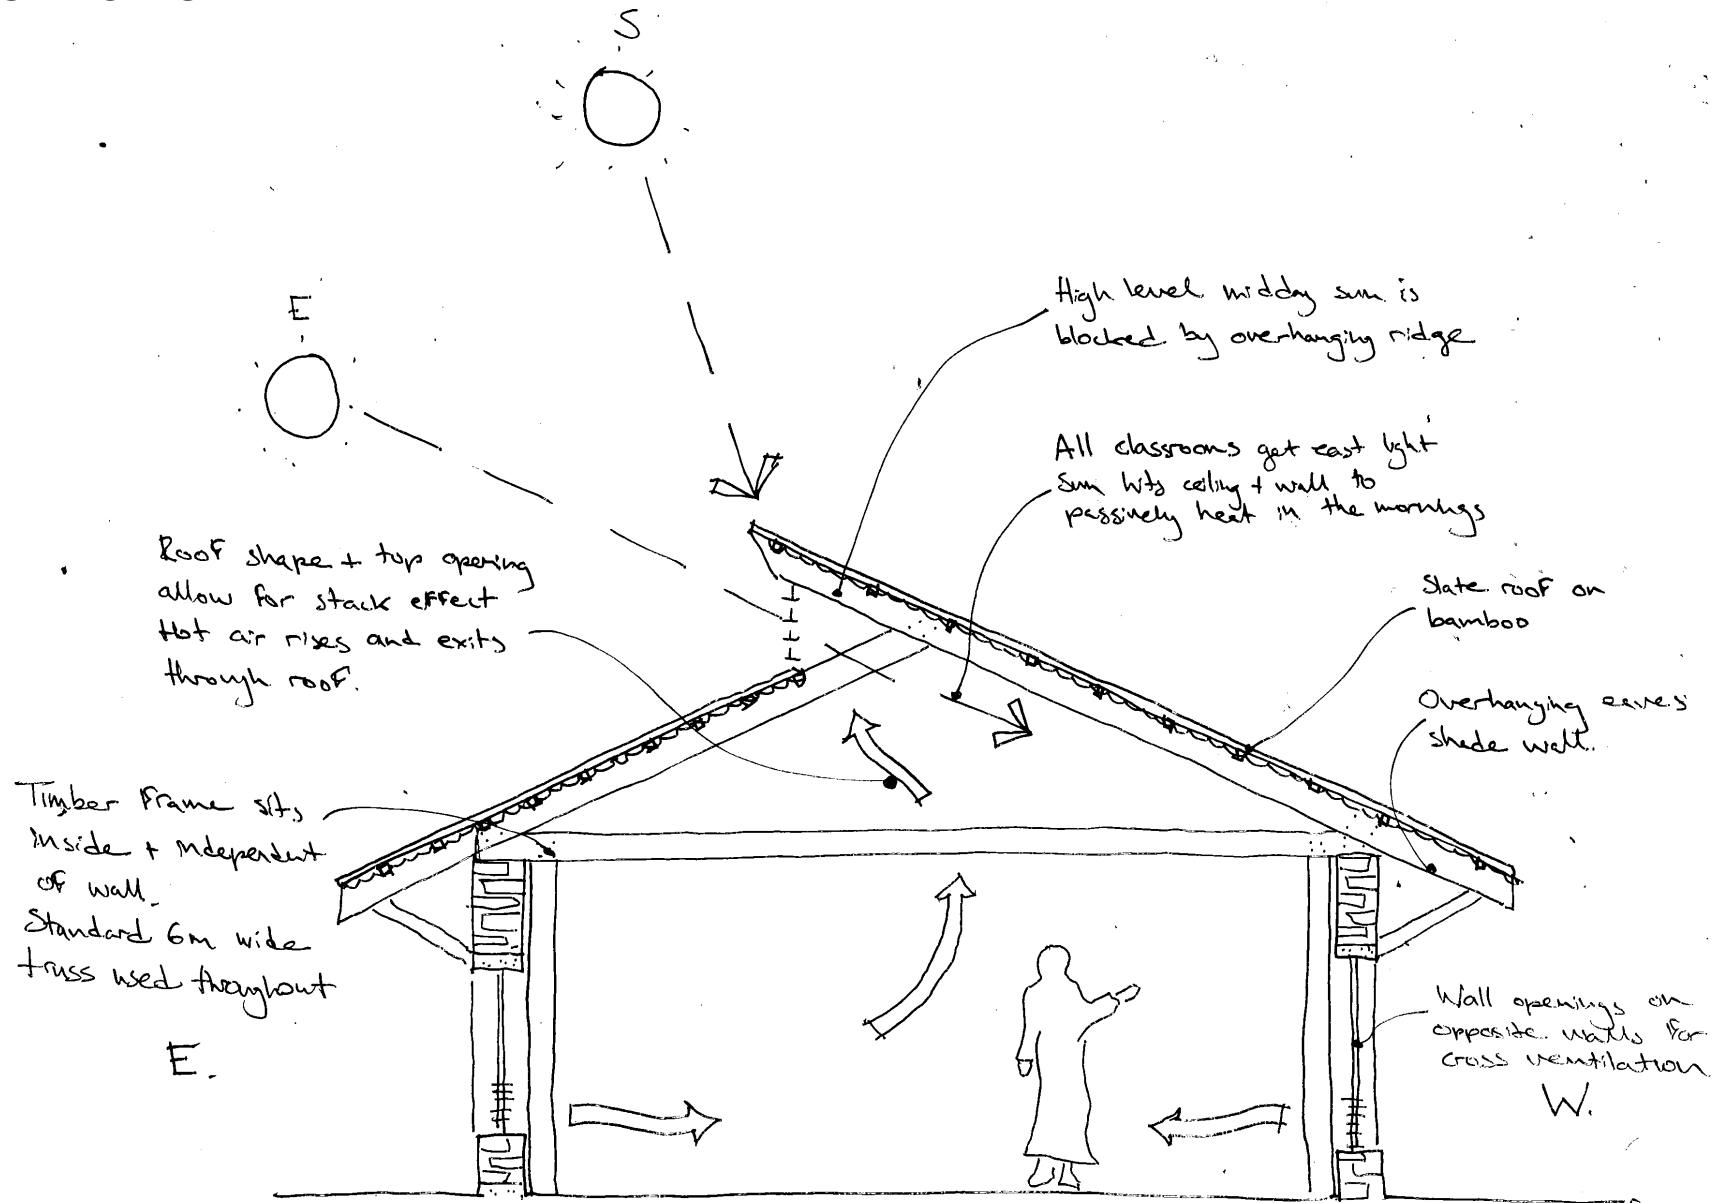 S
E
High level midday sun is
blocked by overhanging ridge
All classrooms get east light
Sun hits ceiling + wall to
passively heat in the mornings
Roof shape + top opening
allow for stack effect
Hot air rises and exits
through roof.
Slate roof on
bamboo
Overhanging eaves
shade wall.
Timber frame sits
inside + independent
of wall.
Standard 6m wide
truss used throughout
E.
Wall openings on
opposite walls for
cross ventilation
W.